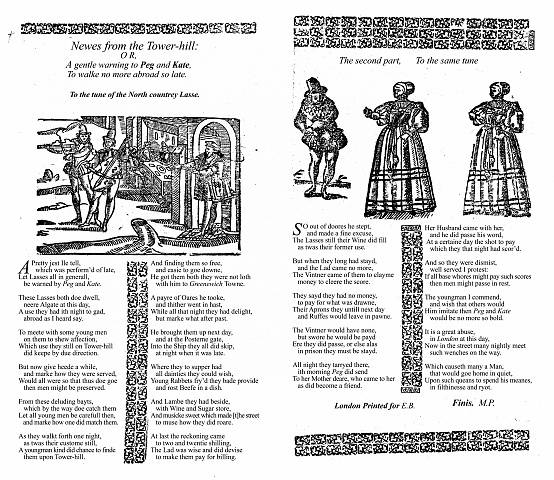 Newes from the Tower-hill:
OR,
A gentle warning to Peg and Kate,
To walke no more abroad so late.
To the tune of the North countrey Lasse.
A Pretty jest Ile tell,
which was perform'd of late,
Let Lasses all in generall,
be warned by Peg and Kate.
These Lasses both doe dwell,
neere Algate at this day,
A use they had ith night to gad,
abroad as I heard say.
To meete with some young men
on them to shew affection,
Which use they still on Tower-hill
did keepe by due direction.
But now give heede a while,
and marke how they were served,
Would all were so that thus doe goe
then men might be preserved.
From these deluding bayts,
which by the way doe catch them
Let all young men be carefull then,
and marke how one did match them.
As they walkt forth one night,
as twas their custome still,
A youngman kind did chance to finde
them upon Tower-hill.
And finding them so free,
and easie to goe downe,
He got them both they were not loth
with him to Greenovich Towne.
A payre of Oares he tooke,
and thither went in hast,
While all that night they had delight,
but marke what after past.
He brought them up next day,
and at the Posteme gate,
Into the Ship they all did skip,
at night when it was late.
Where they to supper had
all dainties they could wish,
Young Rabbets fry'd they bade provide
and rost Beefe in a dish.
And Lambe they had beside,
with Wine and Sugar store,
And musicke sweet which made [t]he street
to muse how they did roare.
At last the reckoning came
to two and twentie shilling,
The Lad was wise and did devise
to make them pay for billing.
The second part, To the same tune
SO out of doores he stept,
and made a fine excuse,
The Lasses still their Wine did fill
as twas their former use.
But when they long had stayd,
and the Lad came no more,
The Vintner came of them to clayme
money to cleere the score.
They sayd they had no money,
to pay for what was drawne,
Their Aprons they untill next day
and Ruffes would leave in pawne.
The Vintner would have none,
but swore he would be payd
Ere they did passe, or else alas
in prison they must be stayd.
All night they turyed there,
ith morning Peg did send
To her Mother deare, who came to her
as did become a friend.
Her Husband came with her,
and he did passe his word,
At a certaine day the shot to pay
which they that night had scor'd.
And so they were dismist,
well served I protest:
If all base whores might pay such scores
then men might passe in rest.
The youngman I commend,
and wish that others would
Him imitate then Peg and Kate
would be no more so bold.
It is a great abuse,
in London at this day,
Now in the street many nightly meet
such wenches on the way.
Which causeth many a Man,
that would goe home in quiet,
Upon such queans to spend his meanes,
in filthinesse and ryot.
London Printed for E.B.
Finis. M.P.